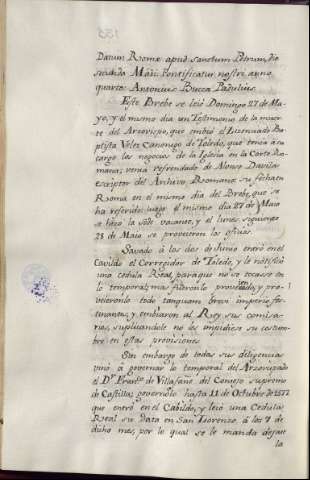 Datum Romæ apud Sanctum Petrum, die
secunda Madii Pontificatus nostri anno
quarto. Antonius Bucca Padulius.
Este Brebe se leió Domingo 27 de Ma-
yo, y el mismo dia un Testimonio de la muer-
te del Arzovispo, que embió el Licenciado Ba-
ptista Velez Canonigo de Toledo, que tenia á su
cargo los negocios de la Iglesia en la Corte Ro-
mana; venia refrendado de Alonso Davila
escriptor del Archivo Romano: su fecha en
Roma en el mismo dia del Brebe, que se
ha referido: luego el mismo dia 27 de Maio
se hizo la Sede vacante, y el lunes siguiente
28 de Maio se proveieron los oficios.
Savado á los dos de Junio entró en el
Cavildo el Corregidor de Toledo, y le notificó
una cedula Real, para que no se tocasse en
lo temporal; mas haviendolo proveido, y pro-
vieronlo todo tanquam brevi imperio for-
tunantes; y embiaron al Rey sus comisa-
rios, suplicandole no les impidiese su costum-
bre en estas provisiones.
Sin embargo de todas sus diligencias
vino á governar lo temporal del Arzovispado
el Dr. Busto de Villafañe del Consejo supremo
de Castilla: governólo hasta 11 de Octubre de 1577
que entró en el Cabildo, y leió una Cedula
Real su data en San Lorenzo, á los 7 de
dicho mes, por lo qual se le manda dejase
la